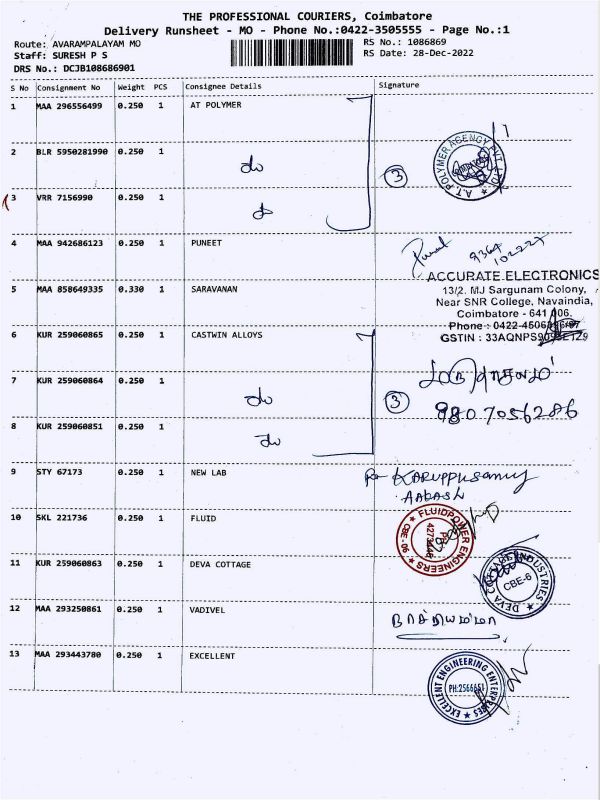 THE PROFESSIONAL COURIERS, Coimbatore
Delivery Runsheet - MO - Phone No.:0422-3505555 - Page No.:1
Route: AVARAMPALAYAM MO
RS No.: 1086869
Staff: SURESH P S
RS Date: 28-Dec-2022
DRS No.: DCJB108686901
S No Consignment No Weight PCS Consignee Details Signature
1 MAA 296556499 0.250 1 AT POLYMER
A.T. POLYMER AGENCY PVT. LTD.
2 BLR 5950281990 0.250 1 do
3
3 VRR 7156990 0.250 1 do
4 MAA 942686123 0.250 1 PUNEET
ACCURATE ELECTRONICS
5 MAA 858649335 0.330 1 SARAVANAN
13/2. MJ Sargunam Colony,
Near SNR College, Navaindia,
Coimbatore - 641 006.
Phone : 0422-4506
GSTIN : 33AQNPS
6 KUR 259060865 0.250 1 CASTWIN ALLOYS
7 KUR 259060864 0.250 1 do
3 9807056286
8 KUR 259060851 0.250 1 do
9 STY 67173 0.250 1 NEW LAB
KARUPPUSAMY
AADASH
10 SKL 221736 0.250 1 FLUID
FLUIDPOWER ENGINEERS
CBE-06
11 KUR 259060863 0.250 1 DEVA COTTAGE
DEVA COTTAGE INDUSTRIES
CBE-6
12 MAA 293250861 0.250 1 VADIVEL
நாச்சியம்மா
13 MAA 293443780 0.250 1 EXCELLENT
EXCELLENT ENGINEERING ENTERPRISES
PH:2566651